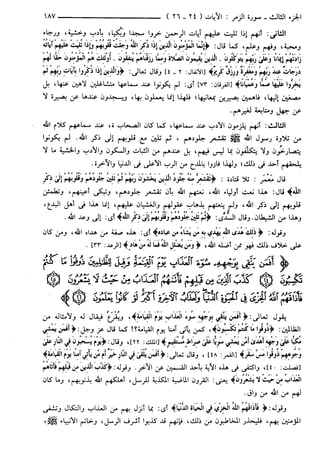 الجزء الثالث ـ سورة الزمر: الآيات (٢٤ ـ ٢٦) ١٨٧
الثاني: أنهم إذا تليت عليهم آيات الرحمن خروا سجدا وبكيا، بأدب وخشية، ورجاء
ومحبة، وفهم وعلم، كما قال: ﴿إِنَّمَا الْمُؤْمِنُونَ الَّذِينَ إِذَا ذُكِرَ اللَّهُ وَجِلَتْ قُلُوبُهُمْ وَإِذَا تُلِيَتْ عَلَيْهِمْ آيَاتُهُ
زَادَتْهُمْ إِيمَانًا وَعَلَى رَبِّهِمْ يَتَوَكَّلُونَ . الَّذِينَ يُقِيمُونَ الصَّلَاةَ وَمِمَّا رَزَقْنَاهُمْ يُنفِقُونَ . أُولَئِكَ هُمُ الْمُؤْمِنُونَ حَقًّا لَّهُمْ
دَرَجَاتٌ عِندَ رَبِّهِمْ وَمَغْفِرَةٌ وَرِزْقٌ كَرِيمٌ﴾ [الأنفال: ٢ ـ ٤] وقال تعالى: ﴿وَالَّذِينَ إِذَا ذُكِّرُوا بِآيَاتِ رَبِّهِمْ لَمْ
يَخِرُّوا عَلَيْهَا صُمًّا وَعُمْيَانًا﴾ [الفرقان: ٧٣] أي: لم يكونوا عند سماعها متشاغلين لاهين عنها، بل
مصغين إليها، فاهمين بصيرين بمعانيها؛ فلهذا إنما يعملون بها، ويسجدون عندها عن بصيرة لا
عن جهل ومتابعة لغيرهم.
الثالث: أنهم يلزمون الأدب عند سماعها، كما كان الصحابة، عند سماعهم كلام الله
من تلاوة رسول الله ﷺ تقشعر جلودهم، ثم تلين مع قلوبهم إلى ذكر الله. لم يكونوا
يتصارخون ولا يتكلفون بما ليس فيهم، بل عندهم من الثبات والسكون والأدب والخشية ما لا
يلحقهم أحد في ذلك؛ ولهذا فازوا بالمدح من الرب الأعلى في الدنيا والآخرة.
قال معمر: تلا قتادة: ﴿تَقْشَعِرُّ مِنْهُ جُلُودُ الَّذِينَ يَخْشَوْنَ رَبَّهُمْ ثُمَّ تَلِينُ جُلُودُهُمْ وَقُلُوبُهُمْ إِلَى ذِكْرِ
اللَّهِ﴾ قال: هذا نعت أولياء الله، نعتهم الله بأن تقشعر جلودهم، وتبكي أعينهم، وتطمئن
قلوبهم إلى ذكر الله، ولم ينعتهم بذهاب عقولهم والغشيان عليهم، إنما هذا في أهل البدع،
وهذا من الشيطان. وقال السدي: ﴿ثُمَّ تَلِينُ جُلُودُهُمْ وَقُلُوبُهُمْ إِلَى ذِكْرِ اللَّهِ﴾ أي: إلى وعد الله.
وقوله: ﴿ذَلِكَ هُدَى اللَّهِ يَهْدِي بِهِ مَن يَشَاءُ مِنْ عِبَادِهِ﴾ أي: هذه صفة من هداه الله، ومن كان
على خلاف ذلك فهو ممن أضله الله، ﴿وَمَن يُضْلِلِ اللَّهُ فَمَا لَهُ مِنْ هَادٍ﴾ [الرعد: ٣٣].
﴿أَفَمَن يَتَّقِي بِوَجْهِهِ سُوءَ الْعَذَابِ يَوْمَ الْقِيَامَةِ وَقِيلَ لِلظَّالِمِينَ ذُوقُوا مَا كُنتُمْ
تَكْسِبُونَ كَذَّبَ الَّذِينَ مِن قَبْلِهِمْ فَأَتَاهُمُ الْعَذَابُ مِنْ حَيْثُ لَا يَشْعُرُونَ
فَأَذَاقَهُمُ اللَّهُ الْخِزْيَ فِي الْحَيَاةِ الدُّنْيَا وَلَعَذَابُ الْآخِرَةِ أَكْبَرُ لَوْ كَانُوا يَعْلَمُونَ﴾
يقول تعالى: ﴿أَفَمَن يَتَّقِي بِوَجْهِهِ سُوءَ الْعَذَابِ يَوْمَ الْقِيَامَةِ﴾، ويقرع فيقال له ولأمثاله من
الظالمين: ﴿ذُوقُوا مَا كُنتُمْ تَكْسِبُونَ﴾، كمن يأتي آمنا يوم القيامة؟! كما قال عز وجل: ﴿أَفَمَن يَمْشِي
مُكِبًّا عَلَى وَجْهِهِ أَهْدَى أَمَّن يَمْشِي سَوِيًّا عَلَى صِرَاطٍ مُّسْتَقِيمٍ﴾ [الملك: ٢٢]، وقال: ﴿يَوْمَ يُسْحَبُونَ فِي النَّارِ عَلَى
وُجُوهِهِمْ ذُوقُوا مَسَّ سَقَرَ﴾ [القمر: ٤٨]، وقال تعالى: ﴿أَفَمَن يُلْقَى فِي النَّارِ خَيْرٌ أَم مَّن يَأْتِي آمِنًا يَوْمَ الْقِيَامَةِ﴾
[فصلت: ٤٠]، واكتفى في هذه الآية بأحد القسمين عن الآخر. وقوله: ﴿كَذَّبَ الَّذِينَ مِن قَبْلِهِمْ فَأَتَاهُمُ
الْعَذَابُ مِنْ حَيْثُ لَا يَشْعُرُونَ﴾ يعني: القرون الماضية المكذبة للرسل، أهلكهم الله بذنوبهم، وما كان
لهم من الله من واق.
وقوله: ﴿فَأَذَاقَهُمُ اللَّهُ الْخِزْيَ فِي الْحَيَاةِ الدُّنْيَا﴾ أي: بما أنزل بهم من العذاب والنكال وتشفى
المؤمنين بهم، فليحذر المخاطبون من ذلك، فإنهم قد كذبوا أشرف الرسل، وخاتم الأنبياء ﷺ،